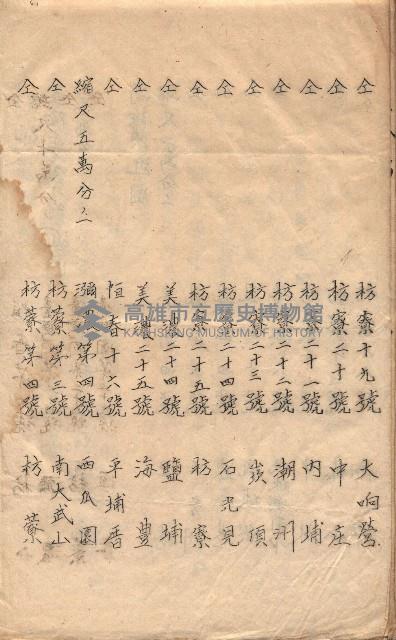 仝 枋寮十九號 大响營
仝 枋寮二十號 中庄
仝 枋寮二十一號 內埔
仝 枋寮二十二號 潮州
仝 枋寮二十三號 崁頂
仝 枋寮二十四號 石光見
仝 枋寮二十五號 枋寮
仝 美濃二十四號 鹽埔
仝 美濃二十五號 海豊
仝 恒春十六號 平埔厝
縮尺五萬分之 瀰濃第四號 西瓜園
仝 枋藔第三號 南大武山
仝 枋藔第四號 枋藔
高雄市立歷史博物館
KAOHSIUNG MUSEUM OF HISTORY